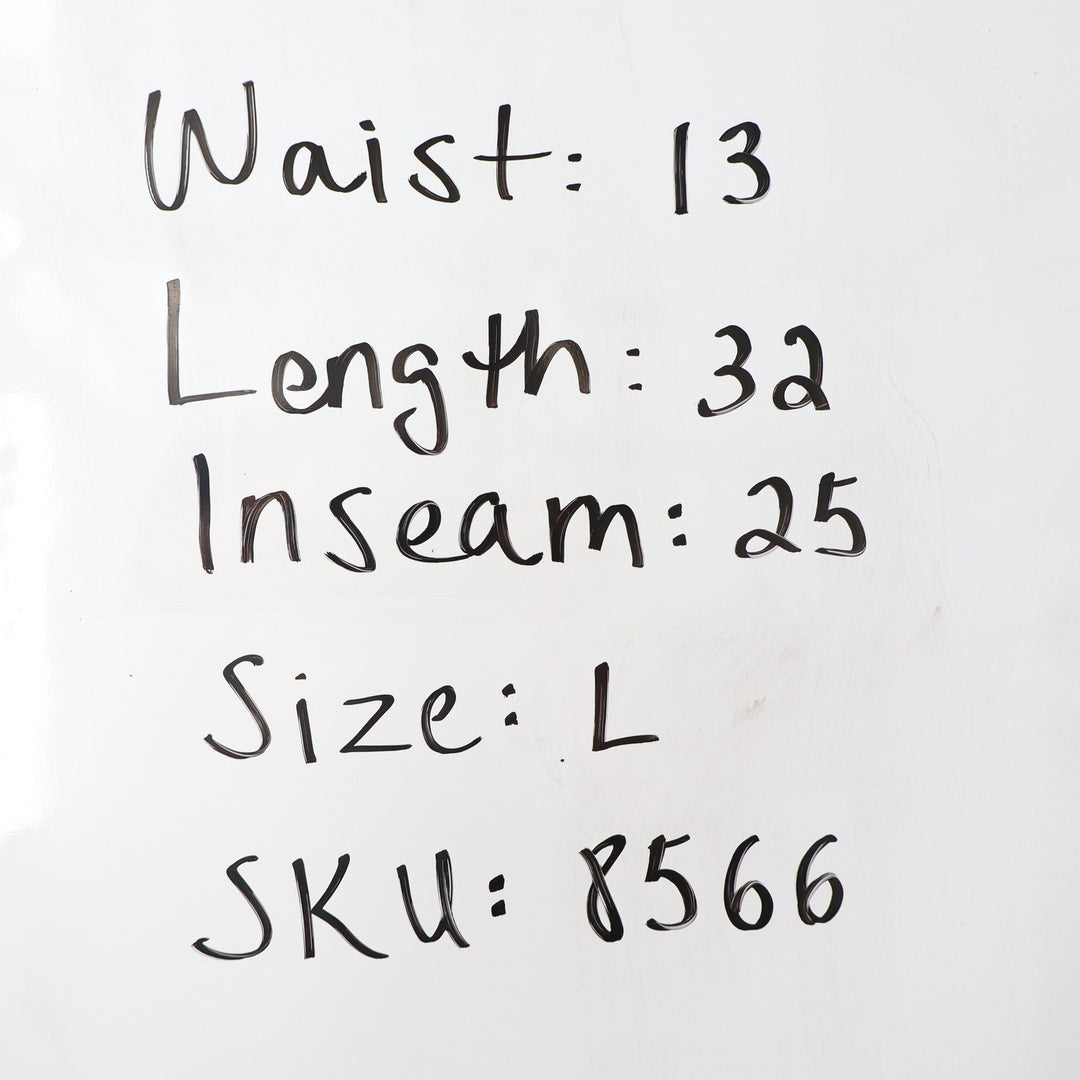 Waist: 13
Length: 32
Inseam: 25
Size: L
SKU: 8566